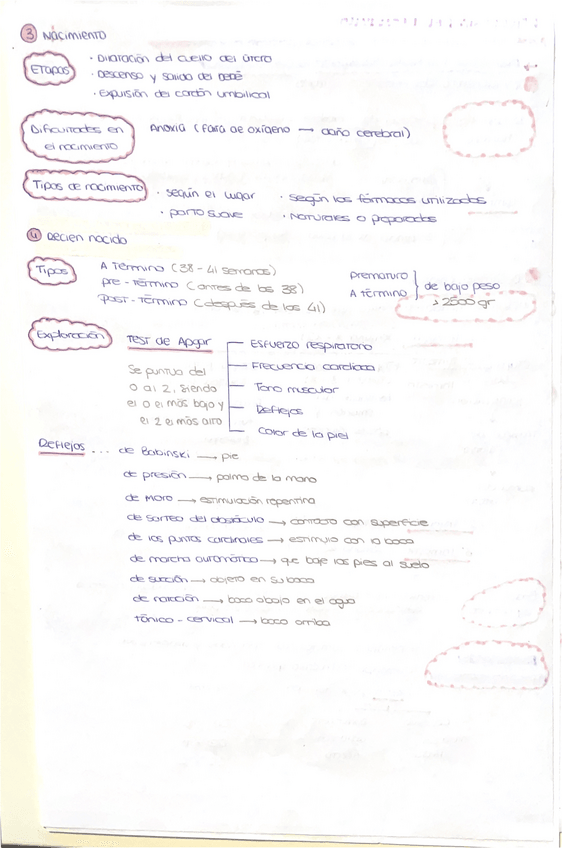 3 Nacimiento
Etapas
· Dilatación del cuello del útero
· Descenso y salida del bebé
· Expulsión del cordón umbilical
Dificultades en el nacimiento
Anoxia (falta de oxígeno → daño cerebral)
Tipos de nacimiento
· según el lugar · según los fármacos utilizados
· parto suave · Naturales o preparados
4 Recien nacido
Tipos
A Término (38 - 41 semanas)
Pre - Término (antes de las 38)
Post - Término (después de las 41)
Prematuro
A término
de bajo peso
2500 gr
Exploración
Test de Apgar
Se puntua del
0 al 2, siendo
el 0 el más bajo y
el 2 el más alto
Esfuerzo respiratorio
Frecuencia cardiaca
Tono muscular
Reflejos
Color de la piel
Reflejos ... de Babinski → pie
de presión → palma de la mano
de Moro → estimulación repentina
de sorteo del obstáculo → contacto con superficie
de los puntos cardinales → estimulo con la boca
de marcha automática → que baje los pies al suelo
de succión → objeto en su boca
de natación → boca abajo en el agua
tónico - cervical → boca arriba